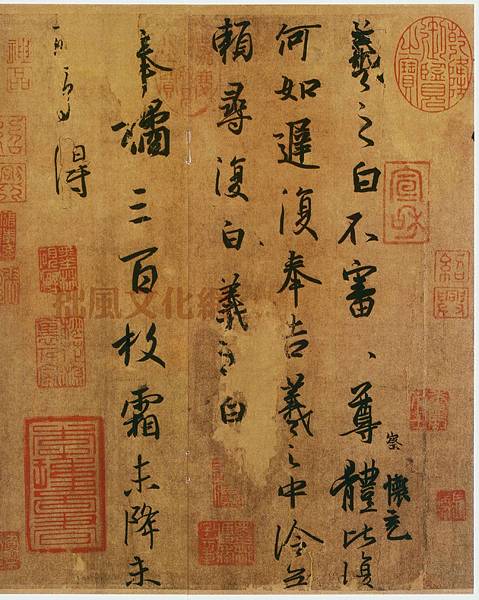 乾隆御覽之寶
宣和
紹興
羲之白不審、尊體比復
察
懷充
何如遲復奉告羲之中冷無
頼尋復白羲之白
奉橘三百枚霜未降未
可多得
拙風文化